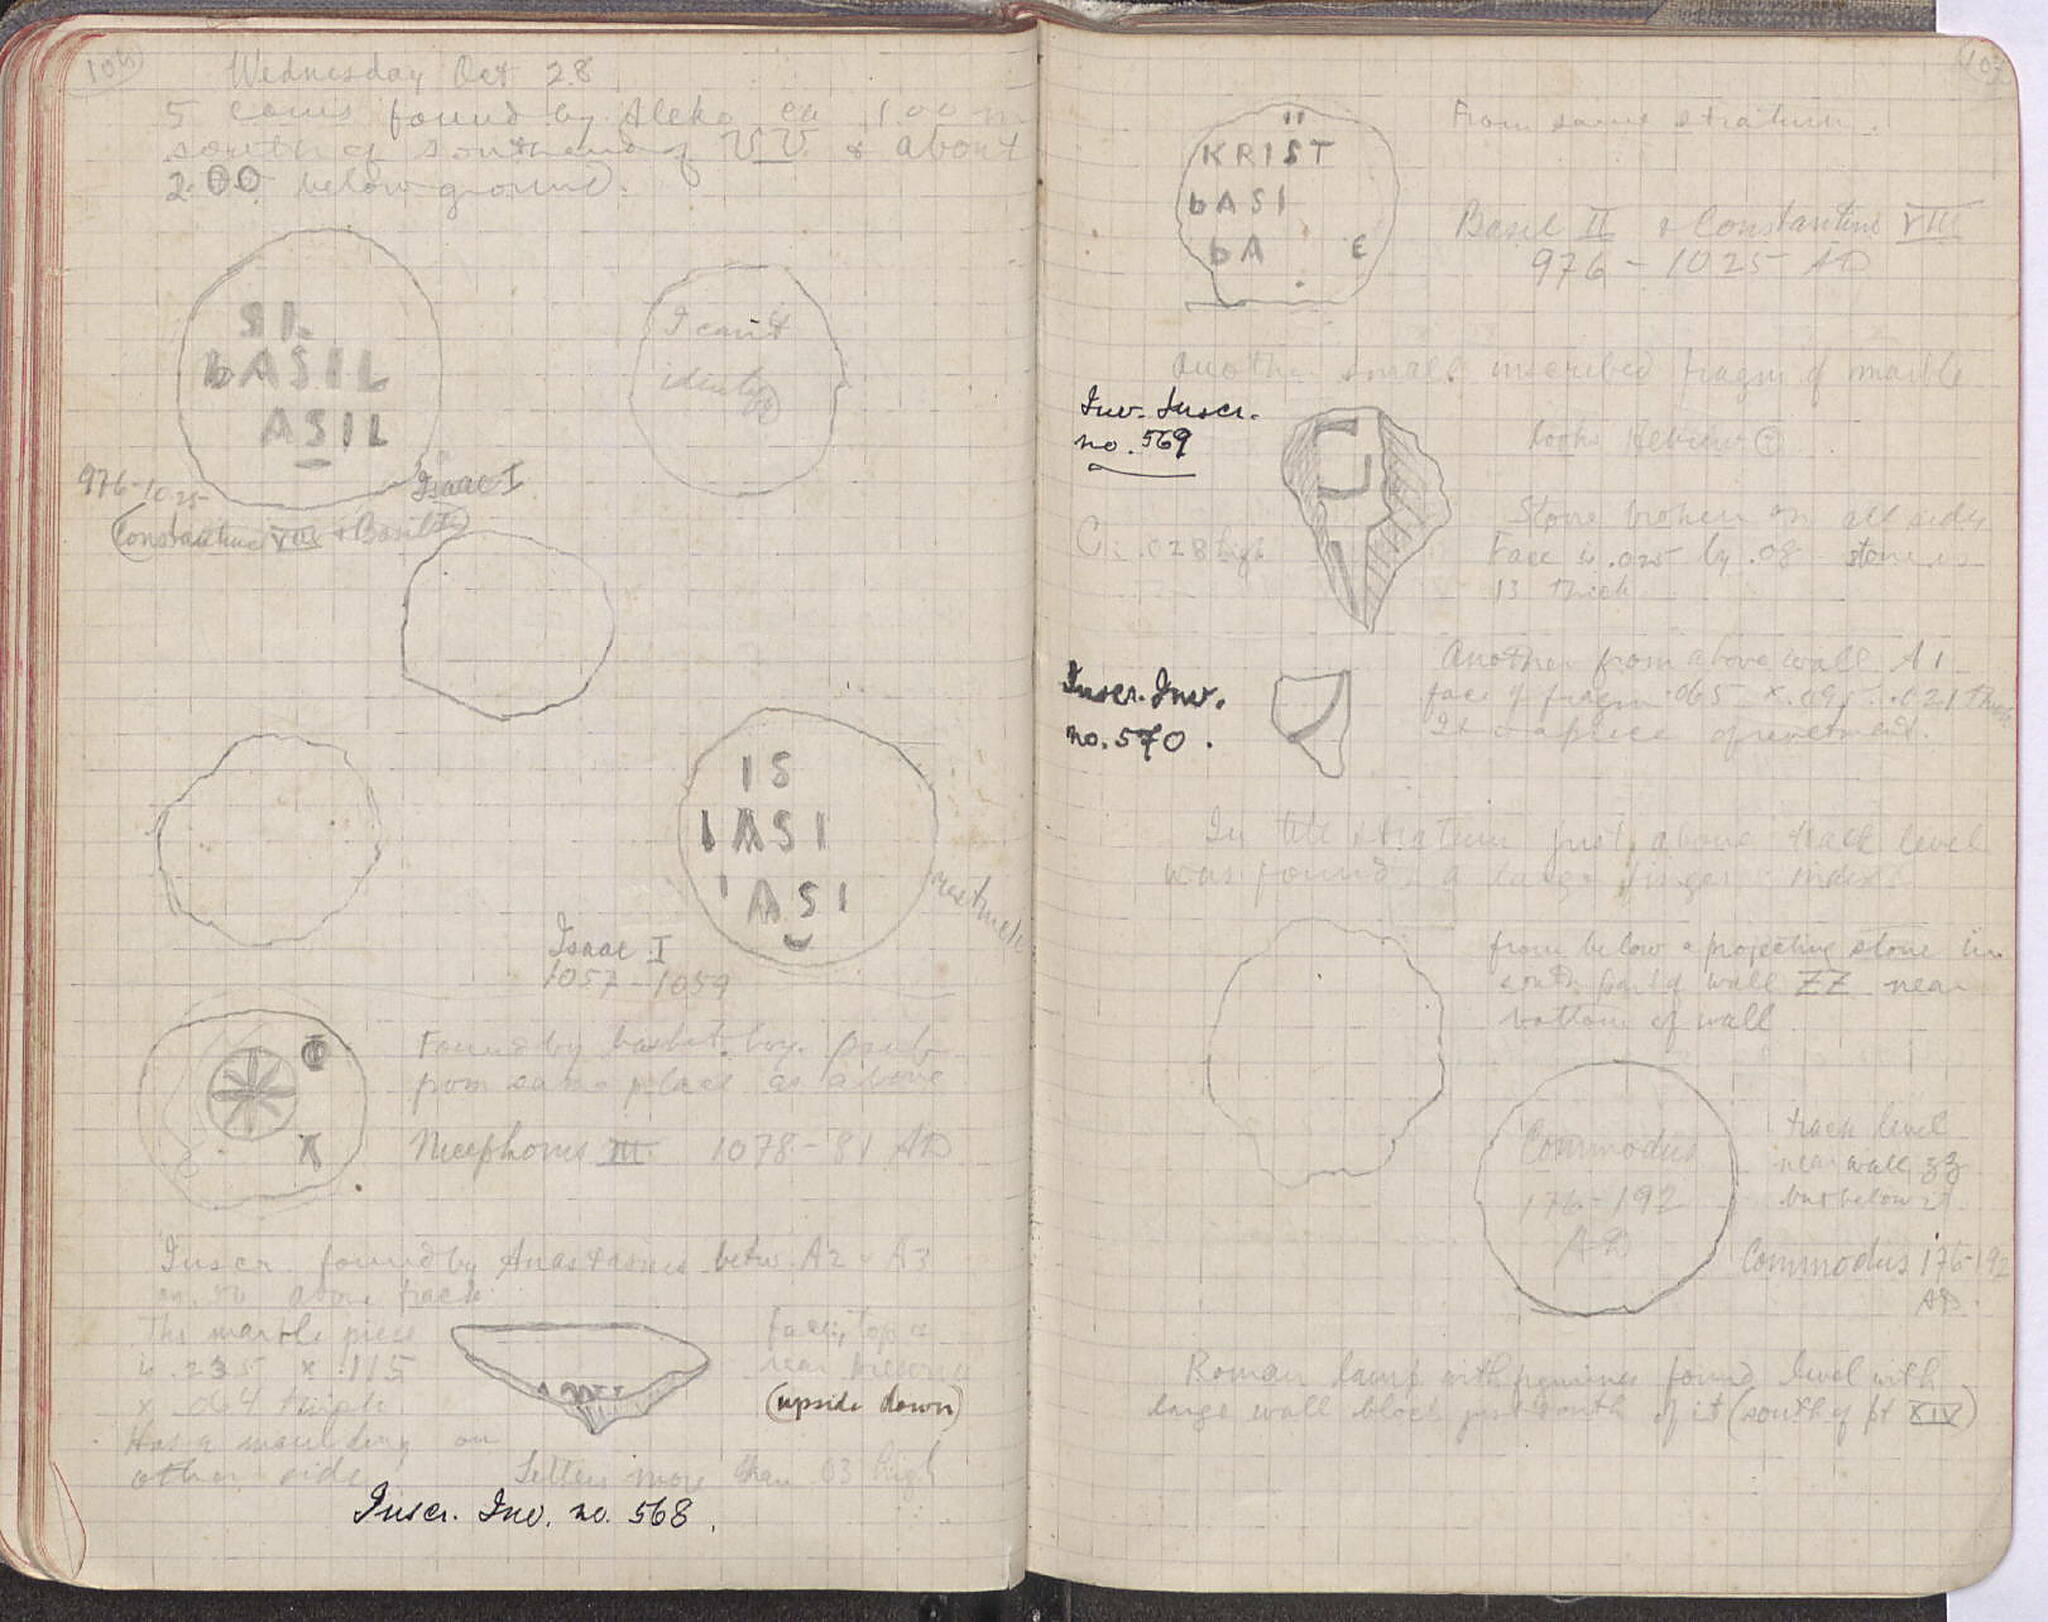 106
Wednesday Oct 28
5 coins found by Aleko ca 1.00 m
south of south end of VV & about
2.00 below ground.
SI
bASIL
ASIL
I can't
identify
976-1025
Isaac I
Constantine VIII & Basil II
IS
bASI
ASI
restruck
Isaac I
1057-1059
Φ
Found by basket boy
from same place as above
Nicephorus III. 1078-'81 AD
Inscr. found by Anastasius betw. A2 & A3
.50 above track
The marble piece
is .235 x .115
x .064 thick
Has a moulding on
other side
face, top is
near
(upside down)
Letters more than .03 high
Inscr. Inv. no. 568.
107
KRIST
bASI
bA E
From same stratum.
Basil II & Constantine VIII
976-1025 AD
Another small inscribed fragm of marble
Inv. Inscr.
no. 569
looks Hebrew ?
.028 high
Stone broken on all sides
Face is .025 by .08 stone is
13 thick
Inscr. Inv.
no. 570.
Another from above wall A1
face of fragm .065 x .09 .021 thick
It is a piece of revetment.
In the stratum just above track level
was found a large finger - index
from below a projecting stone in
south part of wall ZZ near
bottom of wall
Commodus
176-192
AD
track level
near wall ZZ
but below it
Commodus 176-192
AD.
Roman lamp with found level with
large wall block just south of it (south of pt XIV)